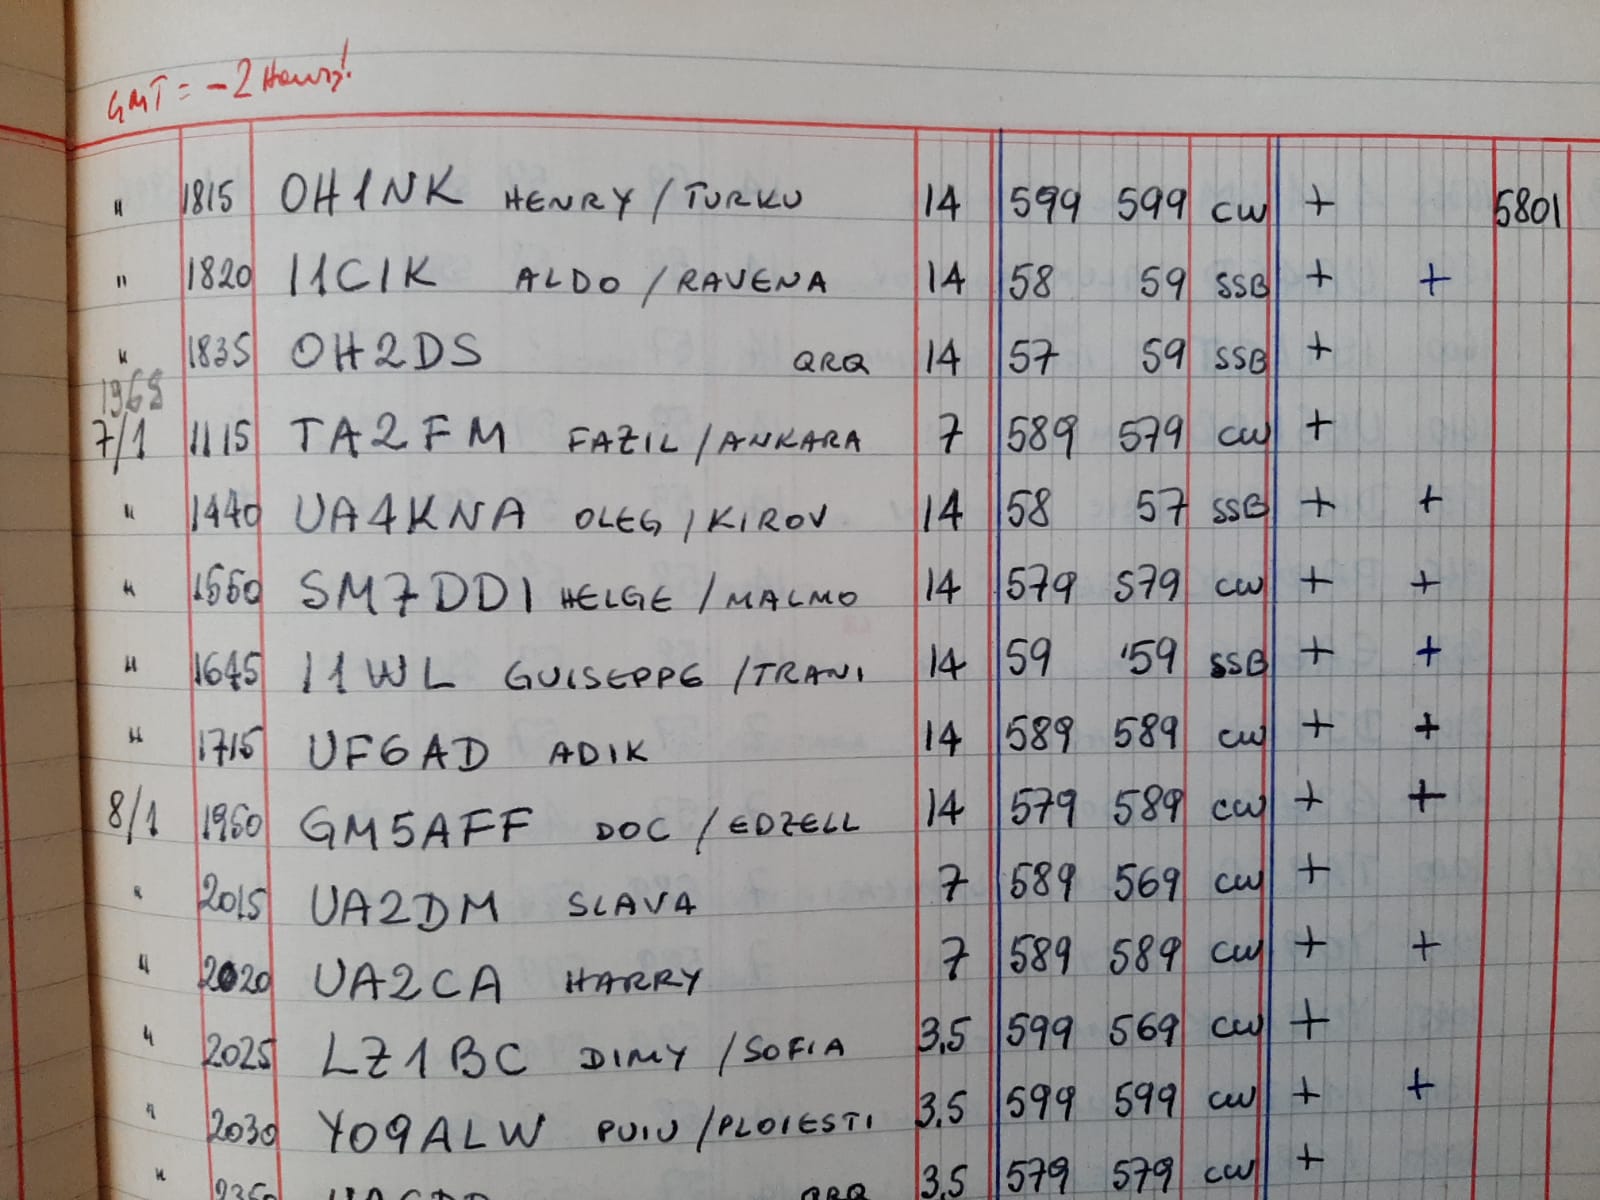 GMT = -2 Hours!
" 1815 OH1NK HENRY / TURKU 14 599 599 CW + 5801
" 1820 I1CIK ALDO / RAVENA 14 58 59 SSB + +
" 1835 OH2DS QRQ 14 57 59 SSB +
1968
7/1 1115 TA2FM FAZIL / ANKARA 7 589 579 CW +
" 1440 UA4KNA OLEG / KIROV 14 58 57 SSB + +
" 1550 SM7DDI HELGE / MALMO 14 579 579 CW + +
" 1645 I1WL GUISEPPE / TRANI 14 59 59 SSB + +
" 1715 UF6AD ADIK 14 589 589 CW + +
8/1 1950 GM5AFF DOC / EDZELL 14 579 589 CW + +
" 2015 UA2DM SLAVA 7 589 569 CW +
" 2020 UA2CA HARRY 7 589 589 CW + +
" 2025 LZ1BC DIMY / SOFIA 3,5 599 569 CW +
" 2030 YO9ALW PUIU / PLOIESTI 3,5 599 599 CW + +
" QRQ 3,5 579 579 CW +